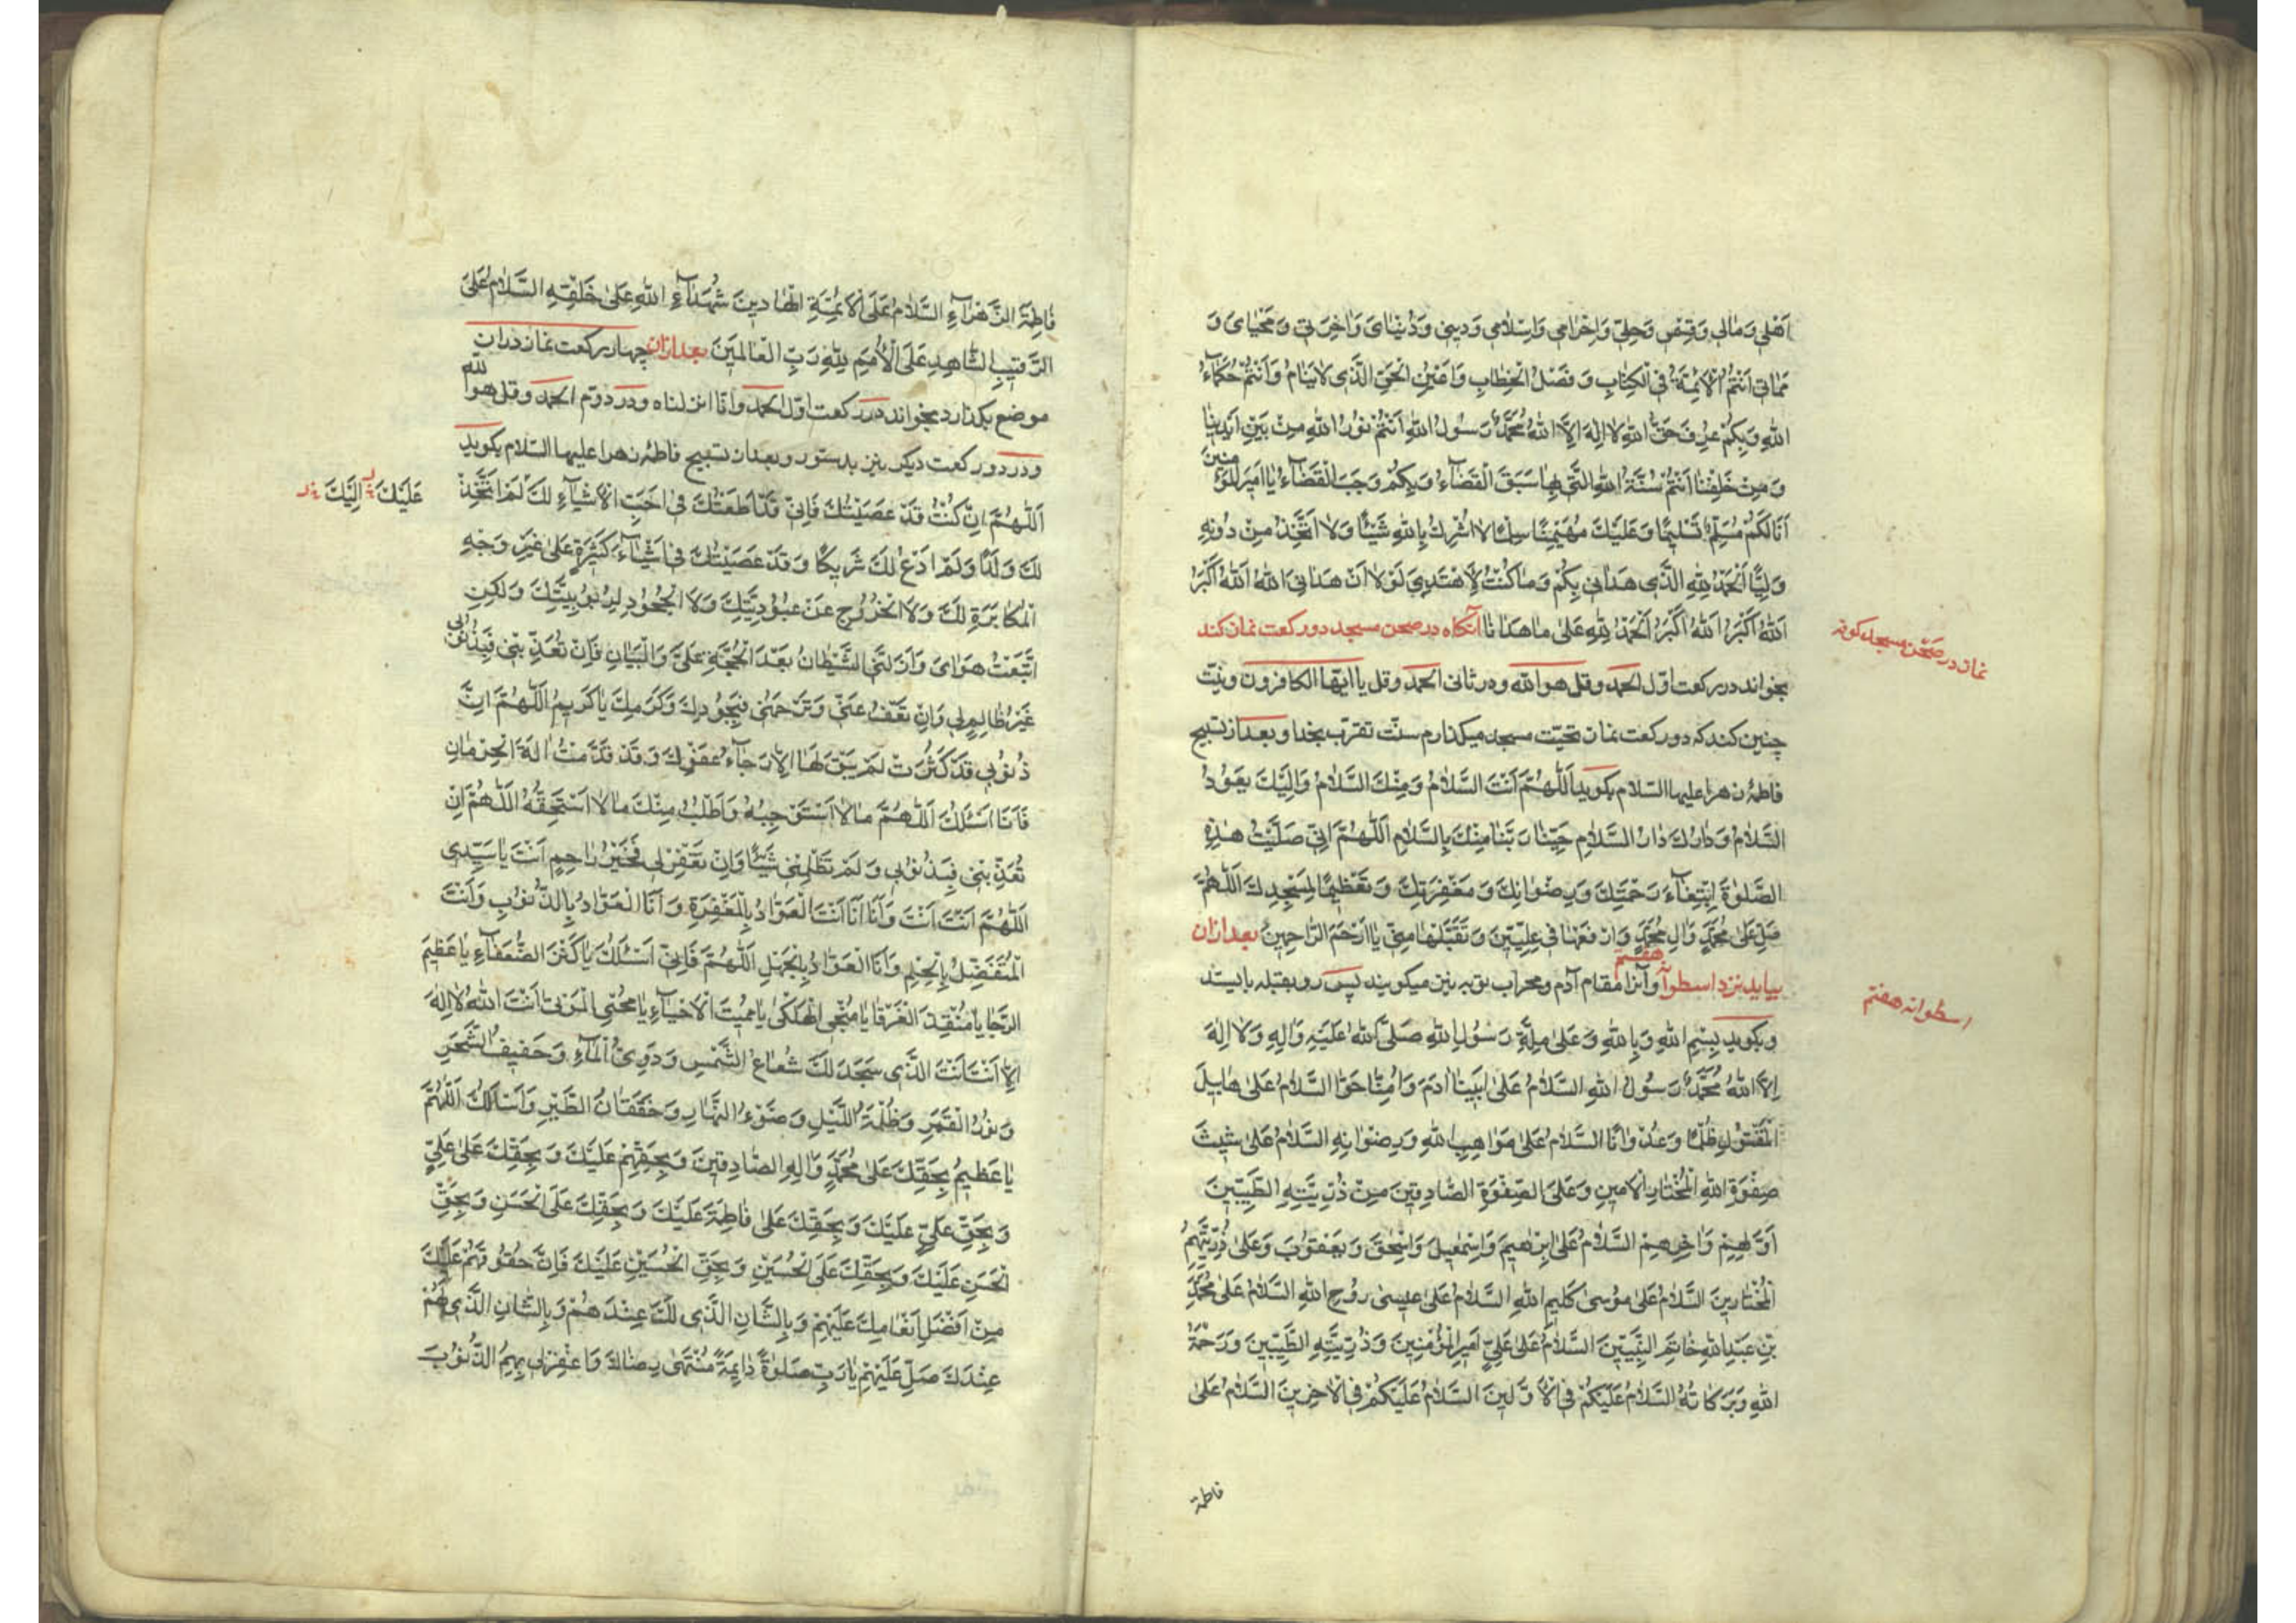 اَهْلي وَمٰالي وَقِسْمي وَحِلّي وَاِحْرٰامي وَاِسْلٰامي وَديني وَدُنْيٰايَ وَاٰخِرَتي وَمَحْيٰايَ وَ
مَمٰاتي اَنْتُمُ الْاَئِمَّةُ فِي الْكِتٰابِ وَفَصْلُ الْخِطٰابِ وَاَعْيُنُ الْحَيِّ الَّذي لٰا يَنٰامُ وَاَنْتُمْ حُكَمٰاءُ
اللهِ وَبِكُمْ عُرِفَ حَقُّ اللهِ لٰا اِلٰهَ اِلَّا اللهُ مُحَمَّدٌ رَسُولُ اللهِ اَنْتُمْ نُورُ اللهِ مِنْ بَيْنِ اَيْدينٰا
وَمِنْ خَلْفِنٰا اَنْتُمْ سُنَّةُ اللهِ الَّتي بِهٰا سَبَقَ الْقَضٰاءُ وَبِكُمْ وَجَبَ الْقَضٰاءُ يٰا اَميرَ الْمُؤْمِنينَ
اَنَا لَكُمْ مُسَلِّمٌ تَسْليمًا وَعَلَيْكَ مُهَيْمِنًا لٰا اُشْرِكُ بِاللهِ شَيْئًا وَلٰا اَتَّخِذُ مِنْ دُونِهِ
وَلِيًّا اَلْحَمْدُ لِلّٰهِ الَّذي هَدٰاني بِكُمْ وَمٰا كُنْتُ لِاَهْتَدِيَ لَوْلٰا اَنْ هَدٰانِيَ اللهُ اَللهُ اَكْبَرُ
اَللهُ اَكْبَرُ اَللهُ اَكْبَرُ اَلْحَمْدُ لِلّٰهِ عَلىٰ مٰا هَدٰانٰا آنكاه در صحن مسجد دو ركعت نماز كند
نماز در صحن مسجد كوفه
بخواند در ركعت اوّل الحمد وقل هو الله ودر ثانى الحمد وقل يا ايّها الكافرون ونيّت
چنين كند كه دو ركعت نماز تحيّت مسجد ميكذارم سنّت تقرّب بخدا وبعد از تسبيح
فاطمهٔ زهرا عليها السّلام بكويد اَللّٰهُمَّ اَنْتَ السَّلٰامُ وَمِنْكَ السَّلٰامُ وَاِلَيْكَ يَعُودُ
السَّلٰامُ وَدٰارُكَ دٰارُ السَّلٰامِ حَيِّنٰا رَبَّنٰا مِنْكَ بِالسَّلٰامِ اَللّٰهُمَّ اِنّي صَلَّيْتُ هٰذِهِ
الصَّلٰوةَ ابْتِغٰاءَ رَحْمَتِكَ وَرِضْوٰانِكَ وَمَغْفِرَتِكَ وَتَعْظيمًا لِمَسْجِدِكَ اَللّٰهُمَّ
صَلِّ عَلىٰ مُحَمَّدٍ وَاٰلِ مُحَمَّدٍ وَارْفَعْهٰا في عِلِّيّينَ وَتَقَبَّلْهٰا مِنّي يٰا اَرْحَمَ الرّٰاحِمينَ بعد ازان
بيايد بنزد اسطوانهٔ هفتم وآنرا مقام آدم ومحراب توبه نيز ميكويند پس رو بقبله بايستد
اسطوانه هفتم
وبكويد بِسْمِ اللهِ وَبِاللهِ وَعَلىٰ مِلَّةِ رَسُولِ اللهِ صَلَّى اللهُ عَلَيْهِ وَاٰلِهِ وَلٰا اِلٰهَ
اِلَّا اللهُ مُحَمَّدٌ رَسُولُ اللهِ السَّلٰامُ عَلىٰ اَبينٰا اٰدَمَ وَاُمِّنٰا حَوّٰا السَّلٰامُ عَلىٰ هٰابيلَ
الْمَقْتُولِ ظُلْمًا وَعُدْوٰانًا السَّلٰامُ عَلىٰ مَوٰاهِبِ اللهِ وَرِضْوٰانِهِ السَّلٰامُ عَلىٰ شَيْثَ
صِفْوَةِ اللهِ الْمُخْتٰارِ الْاَمينِ وَعَلَى الصِّفْوَةِ الصّٰادِقينَ مِنْ ذُرِّيَّتِهِ الطَّيِّبينَ
اَوَّلِهِمْ وَاٰخِرِهِمْ السَّلٰامُ عَلىٰ اِبْرٰهيمَ وَاِسْمٰعيلَ وَاِسْحٰقَ وَيَعْقُوبَ وَعَلىٰ ذُرِّيَّتِهِمُ
الْمُخْتٰارينَ السَّلٰامُ عَلىٰ مُوسىٰ كَليمِ اللهِ السَّلٰامُ عَلىٰ عيسىٰ رُوحِ اللهِ السَّلٰامُ عَلىٰ مُحَمَّدِ
بْنِ عَبْدِ اللهِ خٰاتَمِ النَّبِيّينَ السَّلٰامُ عَلىٰ عَلِيٍّ اَميرِ الْمُؤْمِنينَ وَذُرِّيَّتِهِ الطَّيِّبينَ وَرَحْمَةُ
اللهِ وَبَرَكٰاتُهُ السَّلٰامُ عَلَيْكُمْ فِي الْاَوَّلينَ السَّلٰامُ عَلَيْكُمْ فِي الْاٰخِرينَ السَّلٰامُ عَلىٰ
فاطمة
فٰاطِمَةَ الزَّهْرٰاءِ السَّلٰامُ عَلَى الْاَئِمَّةِ الْهٰادينَ شُهَدٰاءِ اللهِ عَلىٰ خَلْقِهِ السَّلٰامُ عَلَى
الرَّقيبِ الشّٰاهِدِ عَلَى الْاُمَمِ لِلّٰهِ رَبِّ الْعٰالَمينَ بعد ازان چهار ركعت نماز دران
موضع بكذارد بخواند در ركعت اوّل الحمد وانّا انزلناه ودر دوّم الحمد وقل هو الله
ودر دو ركعت ديكر نيز بدستور وبعد از تسبيح فاطمهٔ زهرا عليها السّلام بكويد
اَللّٰهُمَّ اِنْ كُنْتُ قَدْ عَصَيْتُكَ فَاِنّي قَدْ اَطَعْتُكَ في اَحَبِّ الْاَشْيٰاءِ لَكَ لَمْ اَتَّخِذْ
عَلَيْكَ اِلَيْكَ
لَكَ وَلَدًا وَلَمْ اَدْعُ لَكَ شَريكًا وَقَدْ عَصَيْتُكَ في اَشْيٰاءَ كَثيرَةٍ عَلىٰ غَيْرِ وَجْهِ
الْمُكٰابَرَةِ لَكَ وَلَا الْخُرُوجِ عَنْ عُبُودِيَّتِكَ وَلَا الْجُحُودِ لِرُبُوبِيَّتِكَ وَلٰكِنِ
اتَّبَعْتُ هَوٰايَ وَاَزَلَّنِي الشَّيْطٰانُ بَعْدَ الْحُجَّةِ عَلَيَّ وَالْبَيٰانِ فَاِنْ تُعَذِّبْني فَبِذُنُوبي
غَيْرُ ظٰالِمٍ لي وَاِنْ تَعْفُ عَنّي وَتَرْحَمْني فَبِجُودِكَ وَكَرَمِكَ يٰا كَريمُ اَللّٰهُمَّ اِنَّ
ذُنُوبي قَدْ كَثُرَتْ لَمْ يَبْقَ لَهٰا اِلّٰا رَجٰاءُ عَفْوِكَ وَقَدْ قَدَّمْتُ اٰلَةَ الْحِرْمٰانِ
فَاَنَا اَسْئَلُكَ اَللّٰهُمَّ مٰا لٰا اَسْتَوْجِبُهُ وَاَطْلُبُ مِنْكَ مٰا لٰا اَسْتَحِقُّهُ اَللّٰهُمَّ اِنْ
تُعَذِّبْني فَبِذُنُوبي وَلَمْ تَظْلِمْني شَيْئًا وَاِنْ تَغْفِرْ لي فَخَيْرُ رٰاحِمٍ اَنْتَ يٰا سَيِّدي
اَللّٰهُمَّ اَنْتَ اَنْتَ وَاَنَا اَنَا اَنْتَ الْعَوّٰادُ بِالْمَغْفِرَةِ وَاَنَا الْعَوّٰادُ بِالذُّنُوبِ وَاَنْتَ
الْمُتَفَضِّلُ بِالْحِلْمِ وَاَنَا الْعَوّٰادُ بِالْجَهْلِ اَللّٰهُمَّ فَاِنّي اَسْئَلُكَ يٰا كَنْزَ الضُّعَفٰاءِ يٰا عَظيمَ
الرَّجٰا يٰا مُنْقِذَ الْغَرْقىٰ يٰا مُنْجِيَ الْهَلْكىٰ يٰا مُميتَ الْاَحْيٰاءِ يٰا مُحْيِيَ الْمَوْتىٰ اَنْتَ اللهُ لٰا اِلٰهَ
اِلّٰا اَنْتَ اَنْتَ الَّذي سَجَدَ لَكَ شُعٰاعُ الشَّمْسِ وَدَوِيُّ الْمٰاءِ وَحَفيفُ الشَّجَرِ
وَنُورُ الْقَمَرِ وَظُلْمَةُ اللَّيْلِ وَضَوْءُ النَّهٰارِ وَخَفَقٰانُ الطَّيْرِ وَاَسْاَلُكَ اَللّٰهُمَّ
يٰا عَظيمُ بِحَقِّكَ عَلىٰ مُحَمَّدٍ وَاٰلِهِ الصّٰادِقينَ وَبِحَقِّهِمْ عَلَيْكَ وَبِحَقِّكَ عَلىٰ عَلِيٍّ
وَبِحَقِّ عَلِيٍّ عَلَيْكَ وَبِحَقِّكَ عَلىٰ فٰاطِمَةَ عَلَيْكَ وَبِحَقِّكَ عَلَى الْحَسَنِ وَبِحَقِّ
الْحَسَنِ عَلَيْكَ وَبِحَقِّكَ عَلَى الْحُسَيْنِ وَبِحَقِّ الْحُسَيْنِ عَلَيْكَ فَاِنَّ حُقُوقَهُمْ عَلَيْكَ
مِنْ اَفْضَلِ اِنْعٰامِكَ عَلَيْهِمْ وَبِالشَّاْنِ الَّذي لَكَ عِنْدَهُمْ وَبِالشَّاْنِ الَّذي لَهُمْ
عِنْدَكَ صَلِّ عَلَيْهِمْ يٰا رَبِّ صَلٰوةً دٰائِمَةً مُنْتَهىٰ رِضٰاكَ وَاغْفِرْ لي بِهِمُ الذُّنُوبَ